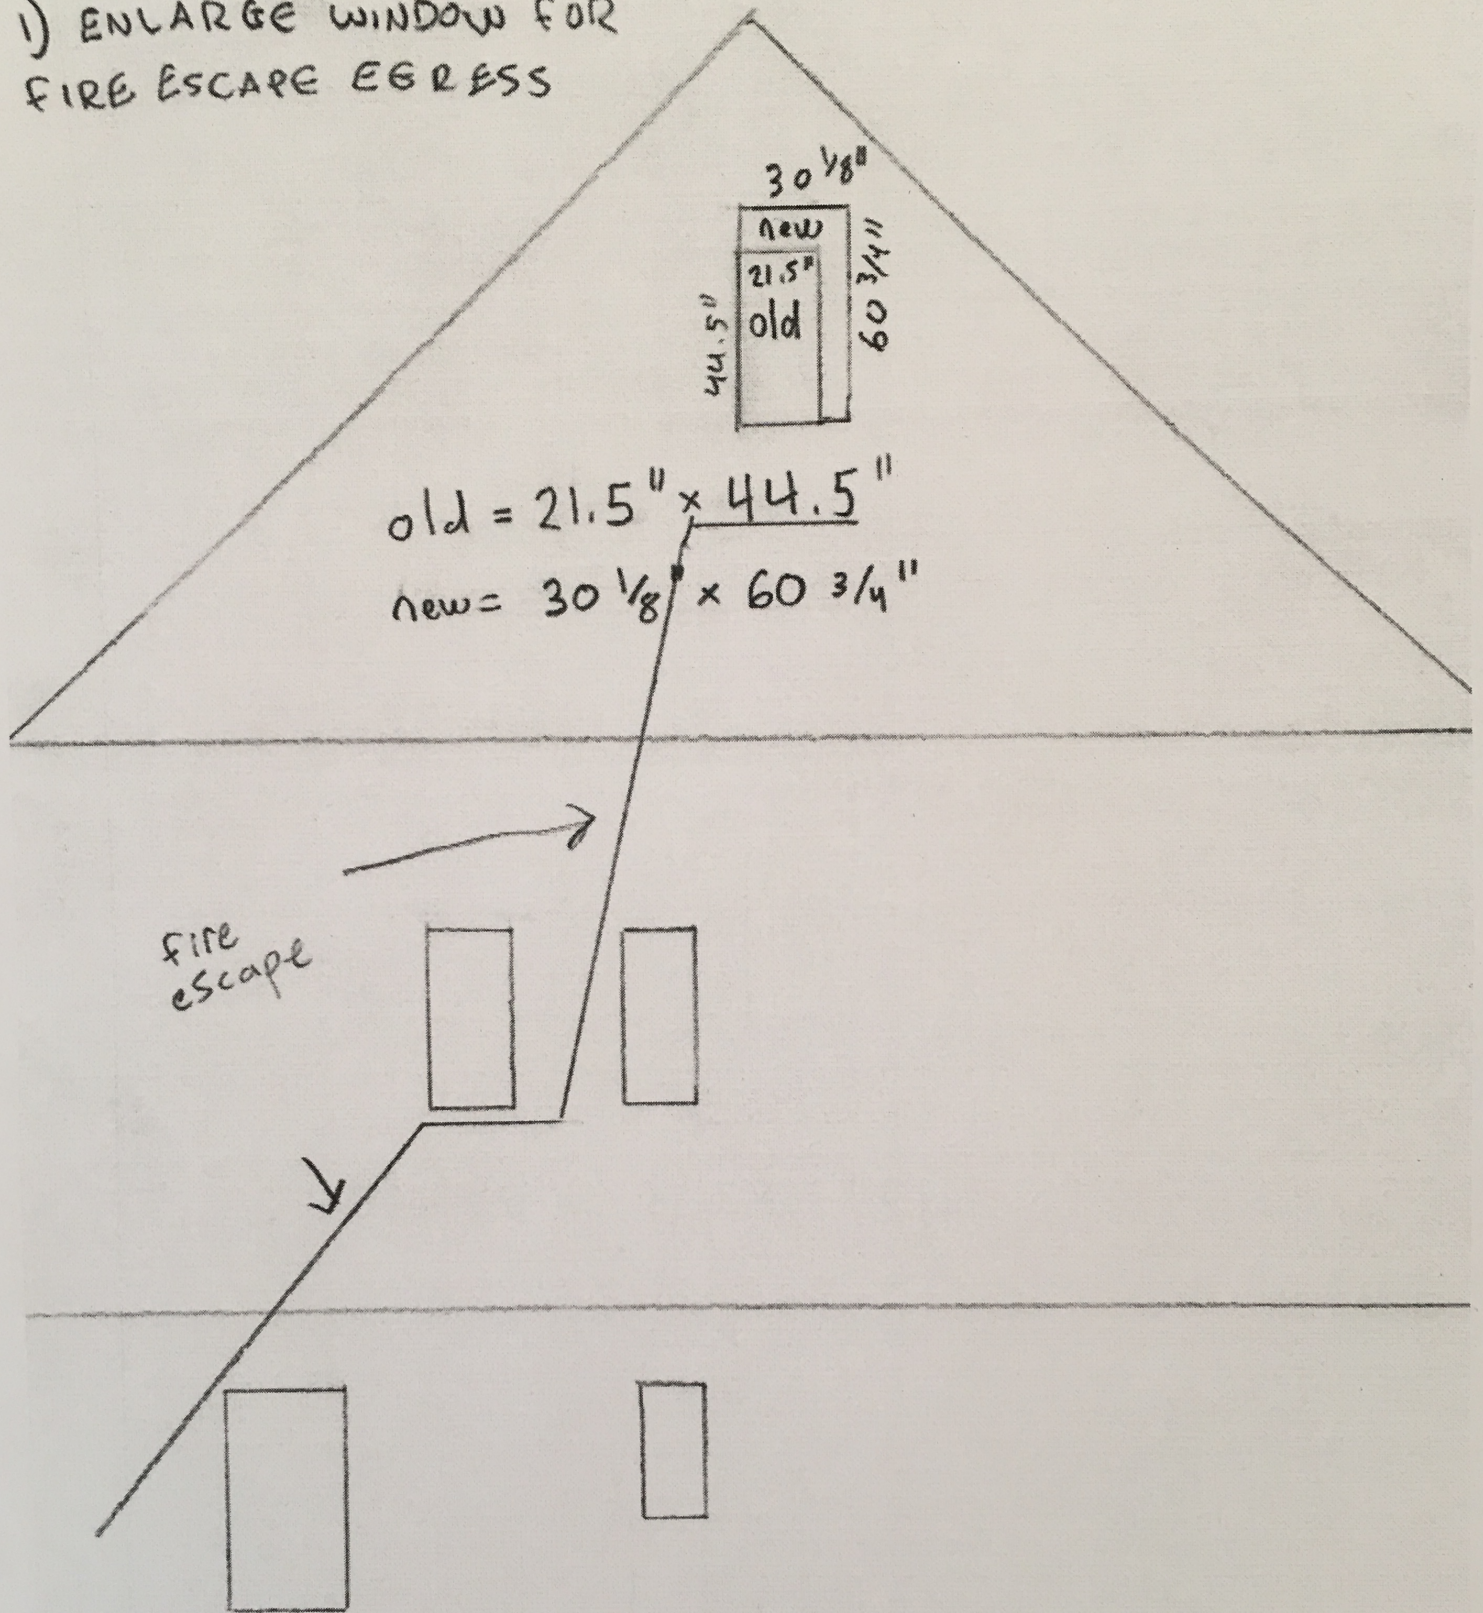 1) ENLARGE WINDOW FOR
FIRE ESCAPE EGRESS
30 1/8"
new
21.5"
old
44.5"
60 3/4"
old = 21.5" x 44.5"
new = 30 1/8 x 60 3/4"
fire
escape